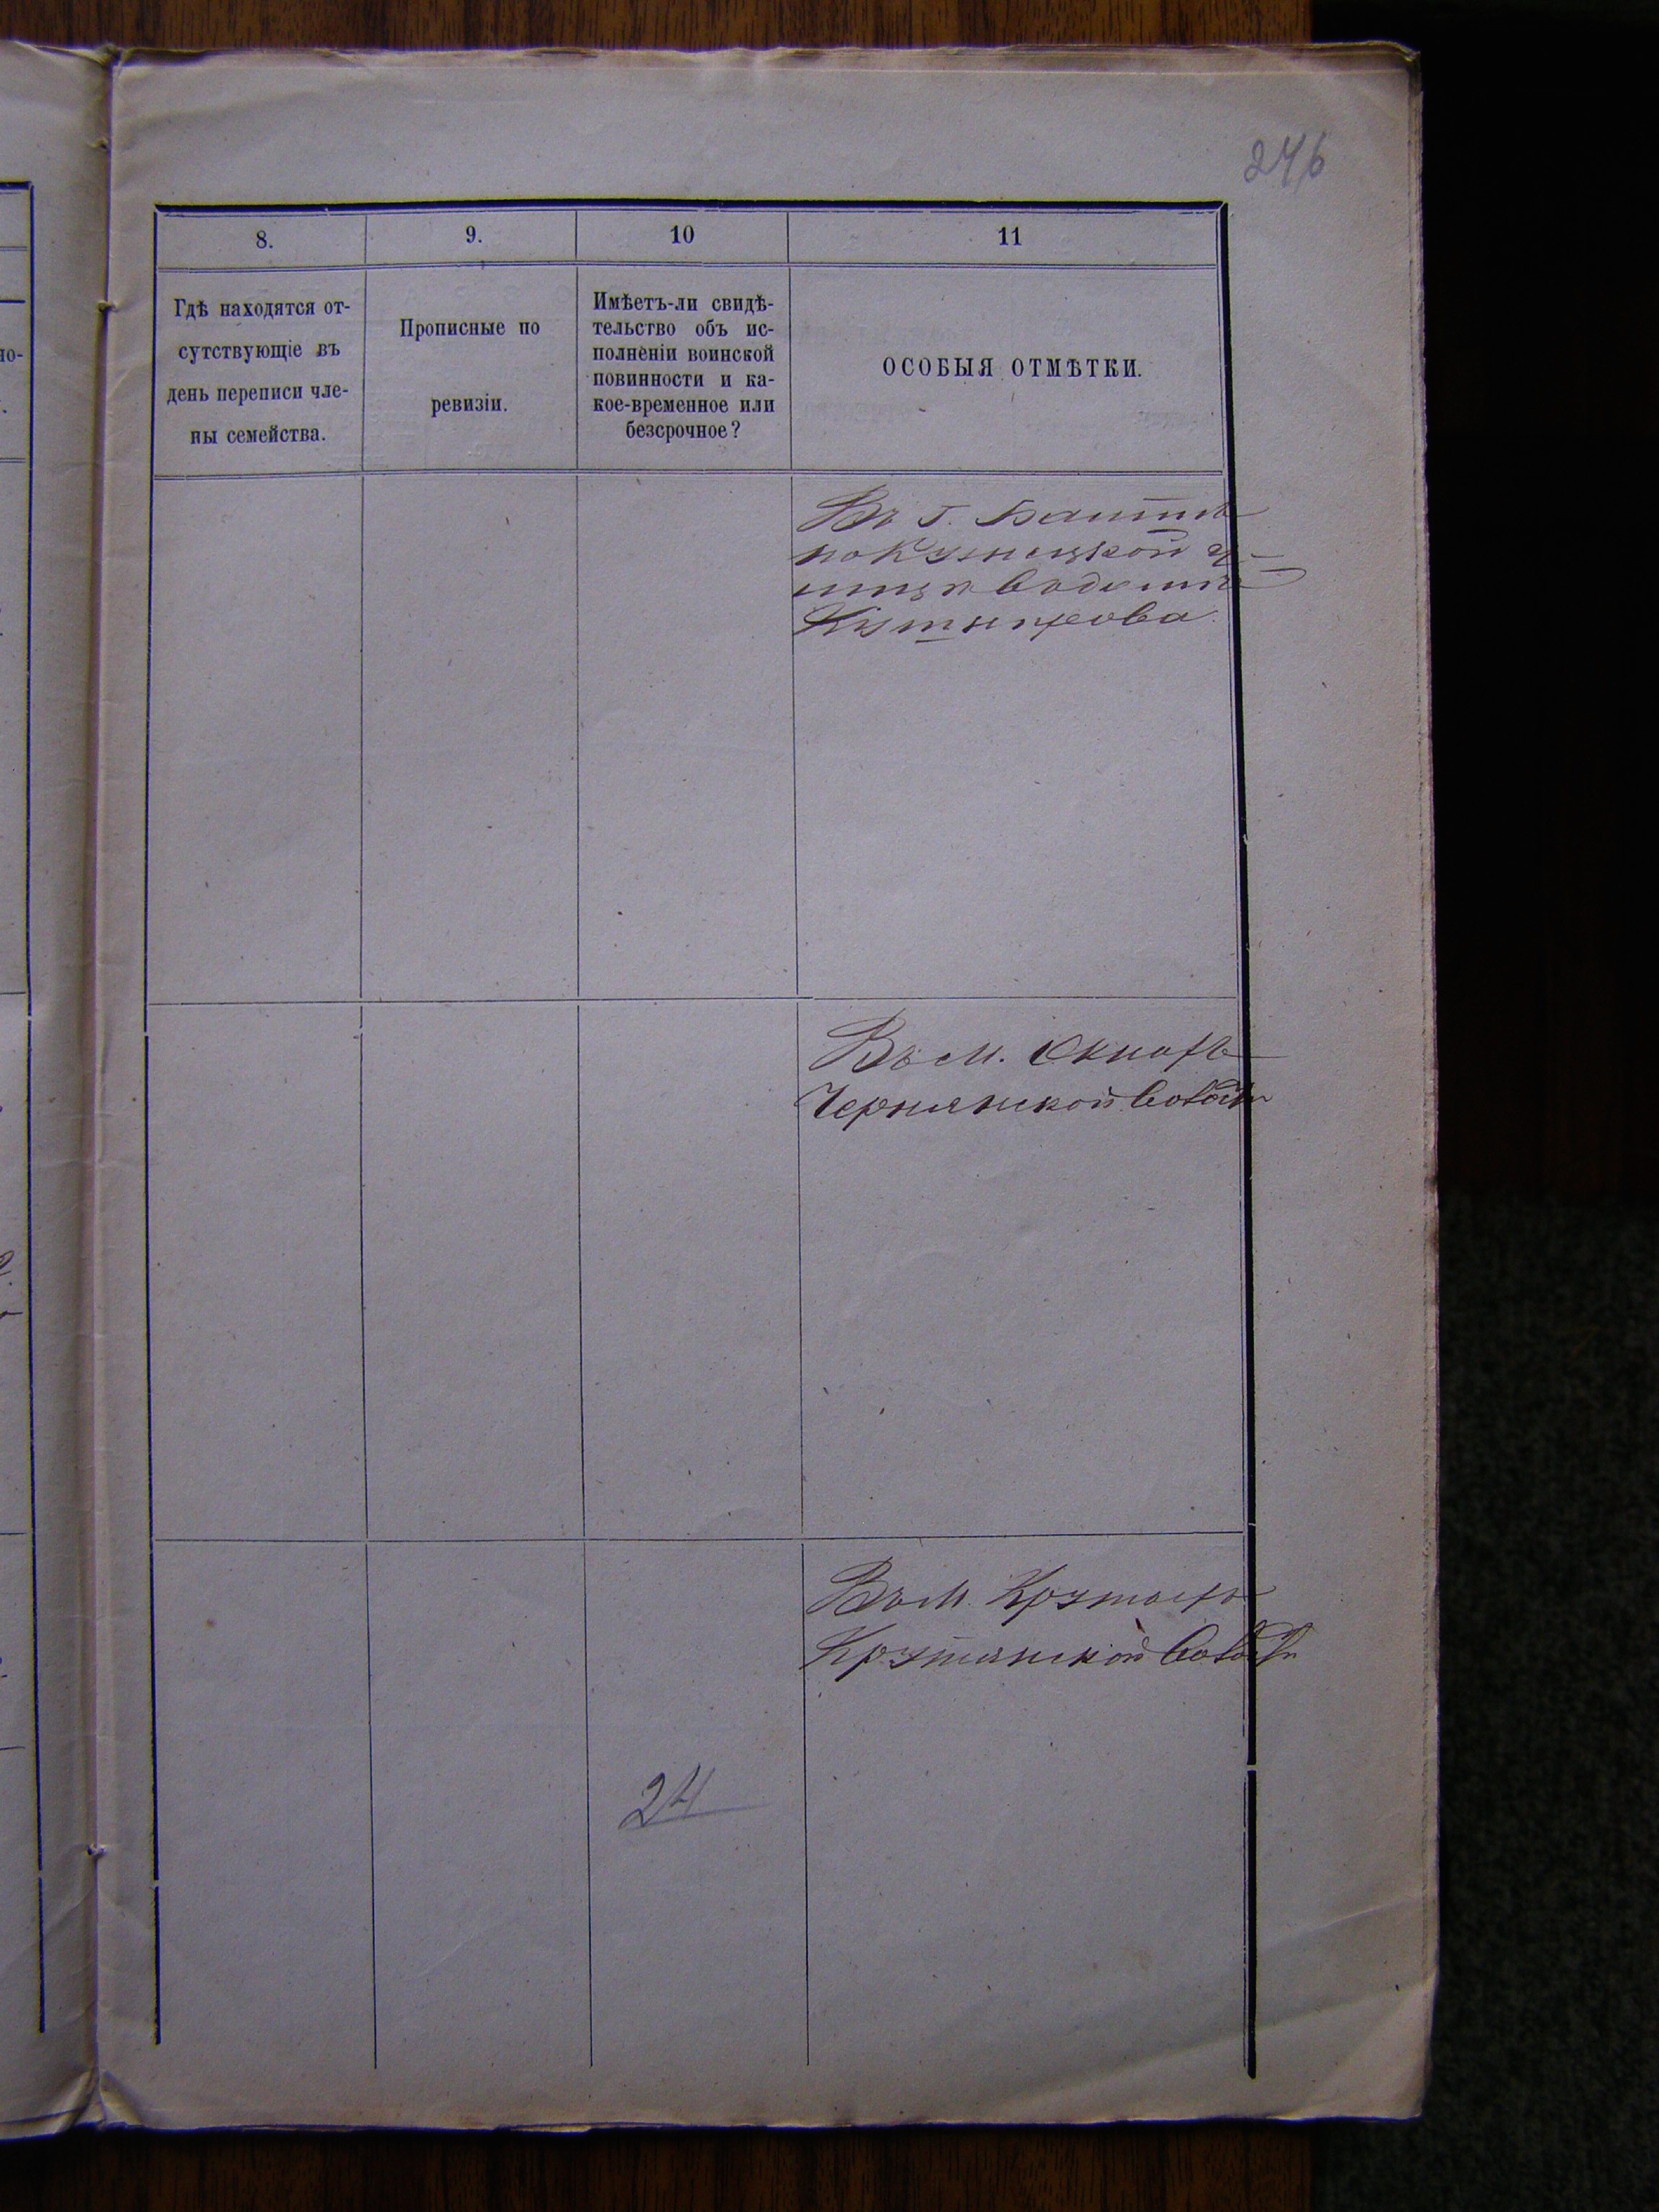 246
8.
9.
10
11
Гдѣ находятся от-
сутствующіе въ
день переписи чле-
ны семейства.
Прописные по
ревизіи.
Имѣетъ-ли свидѣ-
тельство объ ис-
полненіи воинской
повинности и ка-
кое-временное или
безсрочное?
ОСОБЫЯ ОТМѢТКИ.
Въ г. Балтѣ
по Кузнецкой у-
лицѣ в домѣ
Въ м. Окнахъ
Чернянской волости
Въ м. Крутыхъ
Крутянской волости
24